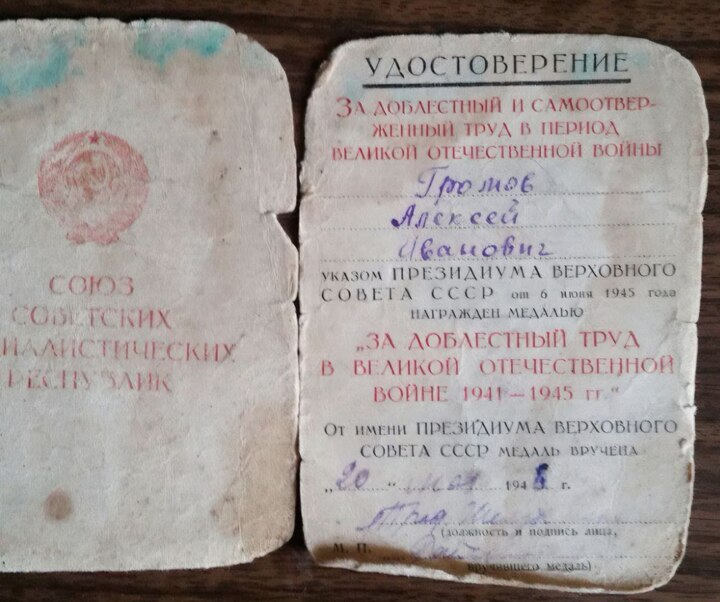 СОЮЗ
СОВЕТСКИХ
ИАЛИСТИЧЕСКИХ
РЕСПУБЛИК
УДОСТОВЕРЕНИЕ
ЗА ДОБЛЕСТНЫЙ И САМООТВЕР-
ЖЕННЫЙ ТРУД В ПЕРИОД
ВЕЛИКОЙ ОТЕЧЕСТВЕННОЙ ВОЙНЫ
Громов
Алексей
Иванович
УКАЗОМ ПРЕЗИДИУМА ВЕРХОВНОГО
СОВЕТА СССР от 6 июня 1945 года
НАГРАЖДЕН МЕДАЛЬЮ
„ЗА ДОБЛЕСТНЫЙ ТРУД
В ВЕЛИКОЙ ОТЕЧЕСТВЕННОЙ
ВОЙНЕ 1941—1945 гг."
ОТ ИМЕНИ ПРЕЗИДИУМА ВЕРХОВНОГО
СОВЕТА СССР МЕДАЛЬ ВРУЧЕНА
„20" 194 г.
(должность и подпись лица,
М. П.
вручившего медаль)